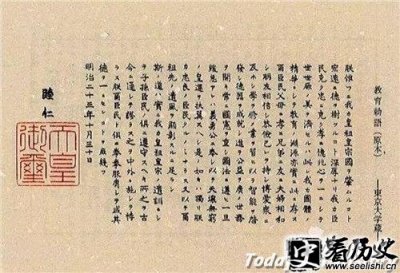 教育勅語（原本）
——東京大学蔵
朕惟フニ我カ皇祖皇宗國ヲ肇ムルコト
宏遠ニ德ヲ樹ツルコト深厚ナリ我カ臣
民克ク忠ニ克ク孝ニ億兆心ヲ一ニシテ
世世厥ノ美ヲ濟セルハ此レ我カ國體ノ
精華ニシテ教育ノ淵源亦實ニ此ニ存ス
爾臣民父母ニ孝ニ兄弟ニ友ニ夫婦相和
シ朋友相信シ恭儉己レヲ持シ博愛衆ニ
及ホシ學ヲ修メ業ヲ習ヒ以テ智能ヲ啓
發シ德器ヲ成就シ進テ公益ヲ廣メ世務
ヲ開キ常ニ國憲ヲ重シ國法ニ遵ヒ一旦
緩急アレハ義勇公ニ奉シ以テ天壤無窮
ノ皇運ヲ扶翼スヘシ是ノ如キハ獨リ朕
カ忠良ノ臣民タルノミナラス又以テ爾
祖先ノ遺風ヲ顯彰スルニ足ラン
斯ノ道ハ實ニ我カ皇祖皇宗ノ遺訓ニシ
テ子孫臣民ノ俱ニ遵守スヘキ所之ヲ古
今ニ通シテ謬ラス之ヲ中外ニ施シテ悖
ラス朕爾臣民ト俱ニ拳々服膺シテ咸其
德ヲ一ニセンコトヲ庶幾フ
明治二十三年十月三十日
睦仁
天皇
御璽
Toda
看历史
www.seelishi.cn